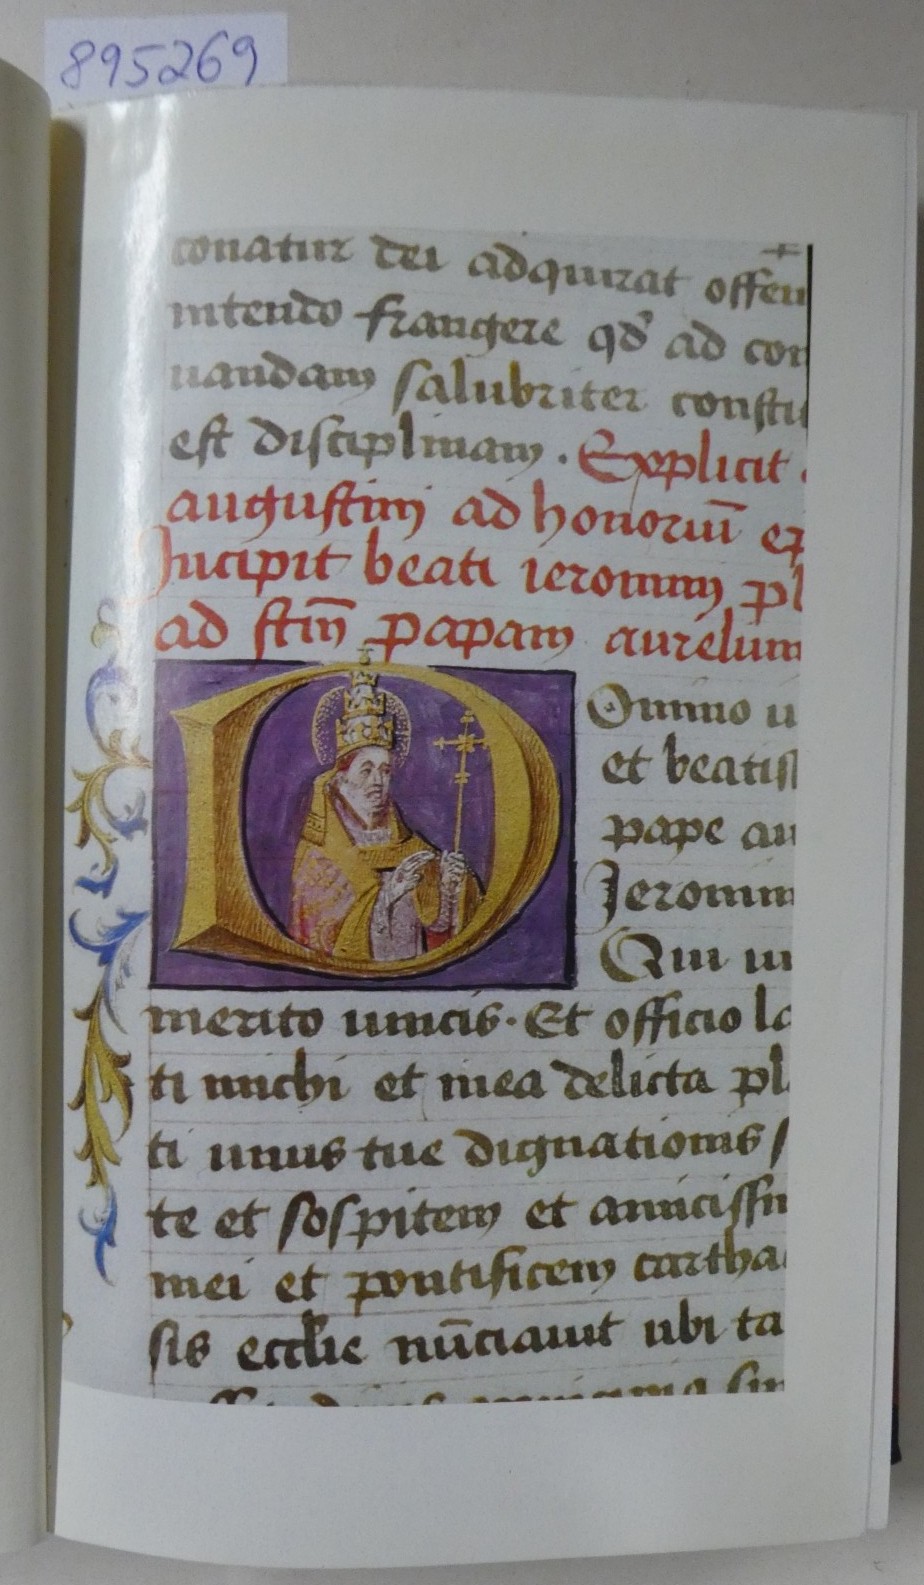 895269
conatur dei adquirat offen
intendo frangere qd' ad con
uandam salubriter constit
est disciplinam . Explicit
augustini ad honoriū ep
Incipit beati ieronimi
ad s̄tm̄ papam aurelium
D Omino u
et beatiss
pape au
Jeronim
Qui in
merito uincis · Et officio lo
ti michi et mea delicta
ti unus tue dignationis
te et sospitem et amicissim
mei et pontificem cartha
sis ecclie nūciauit ubi ta